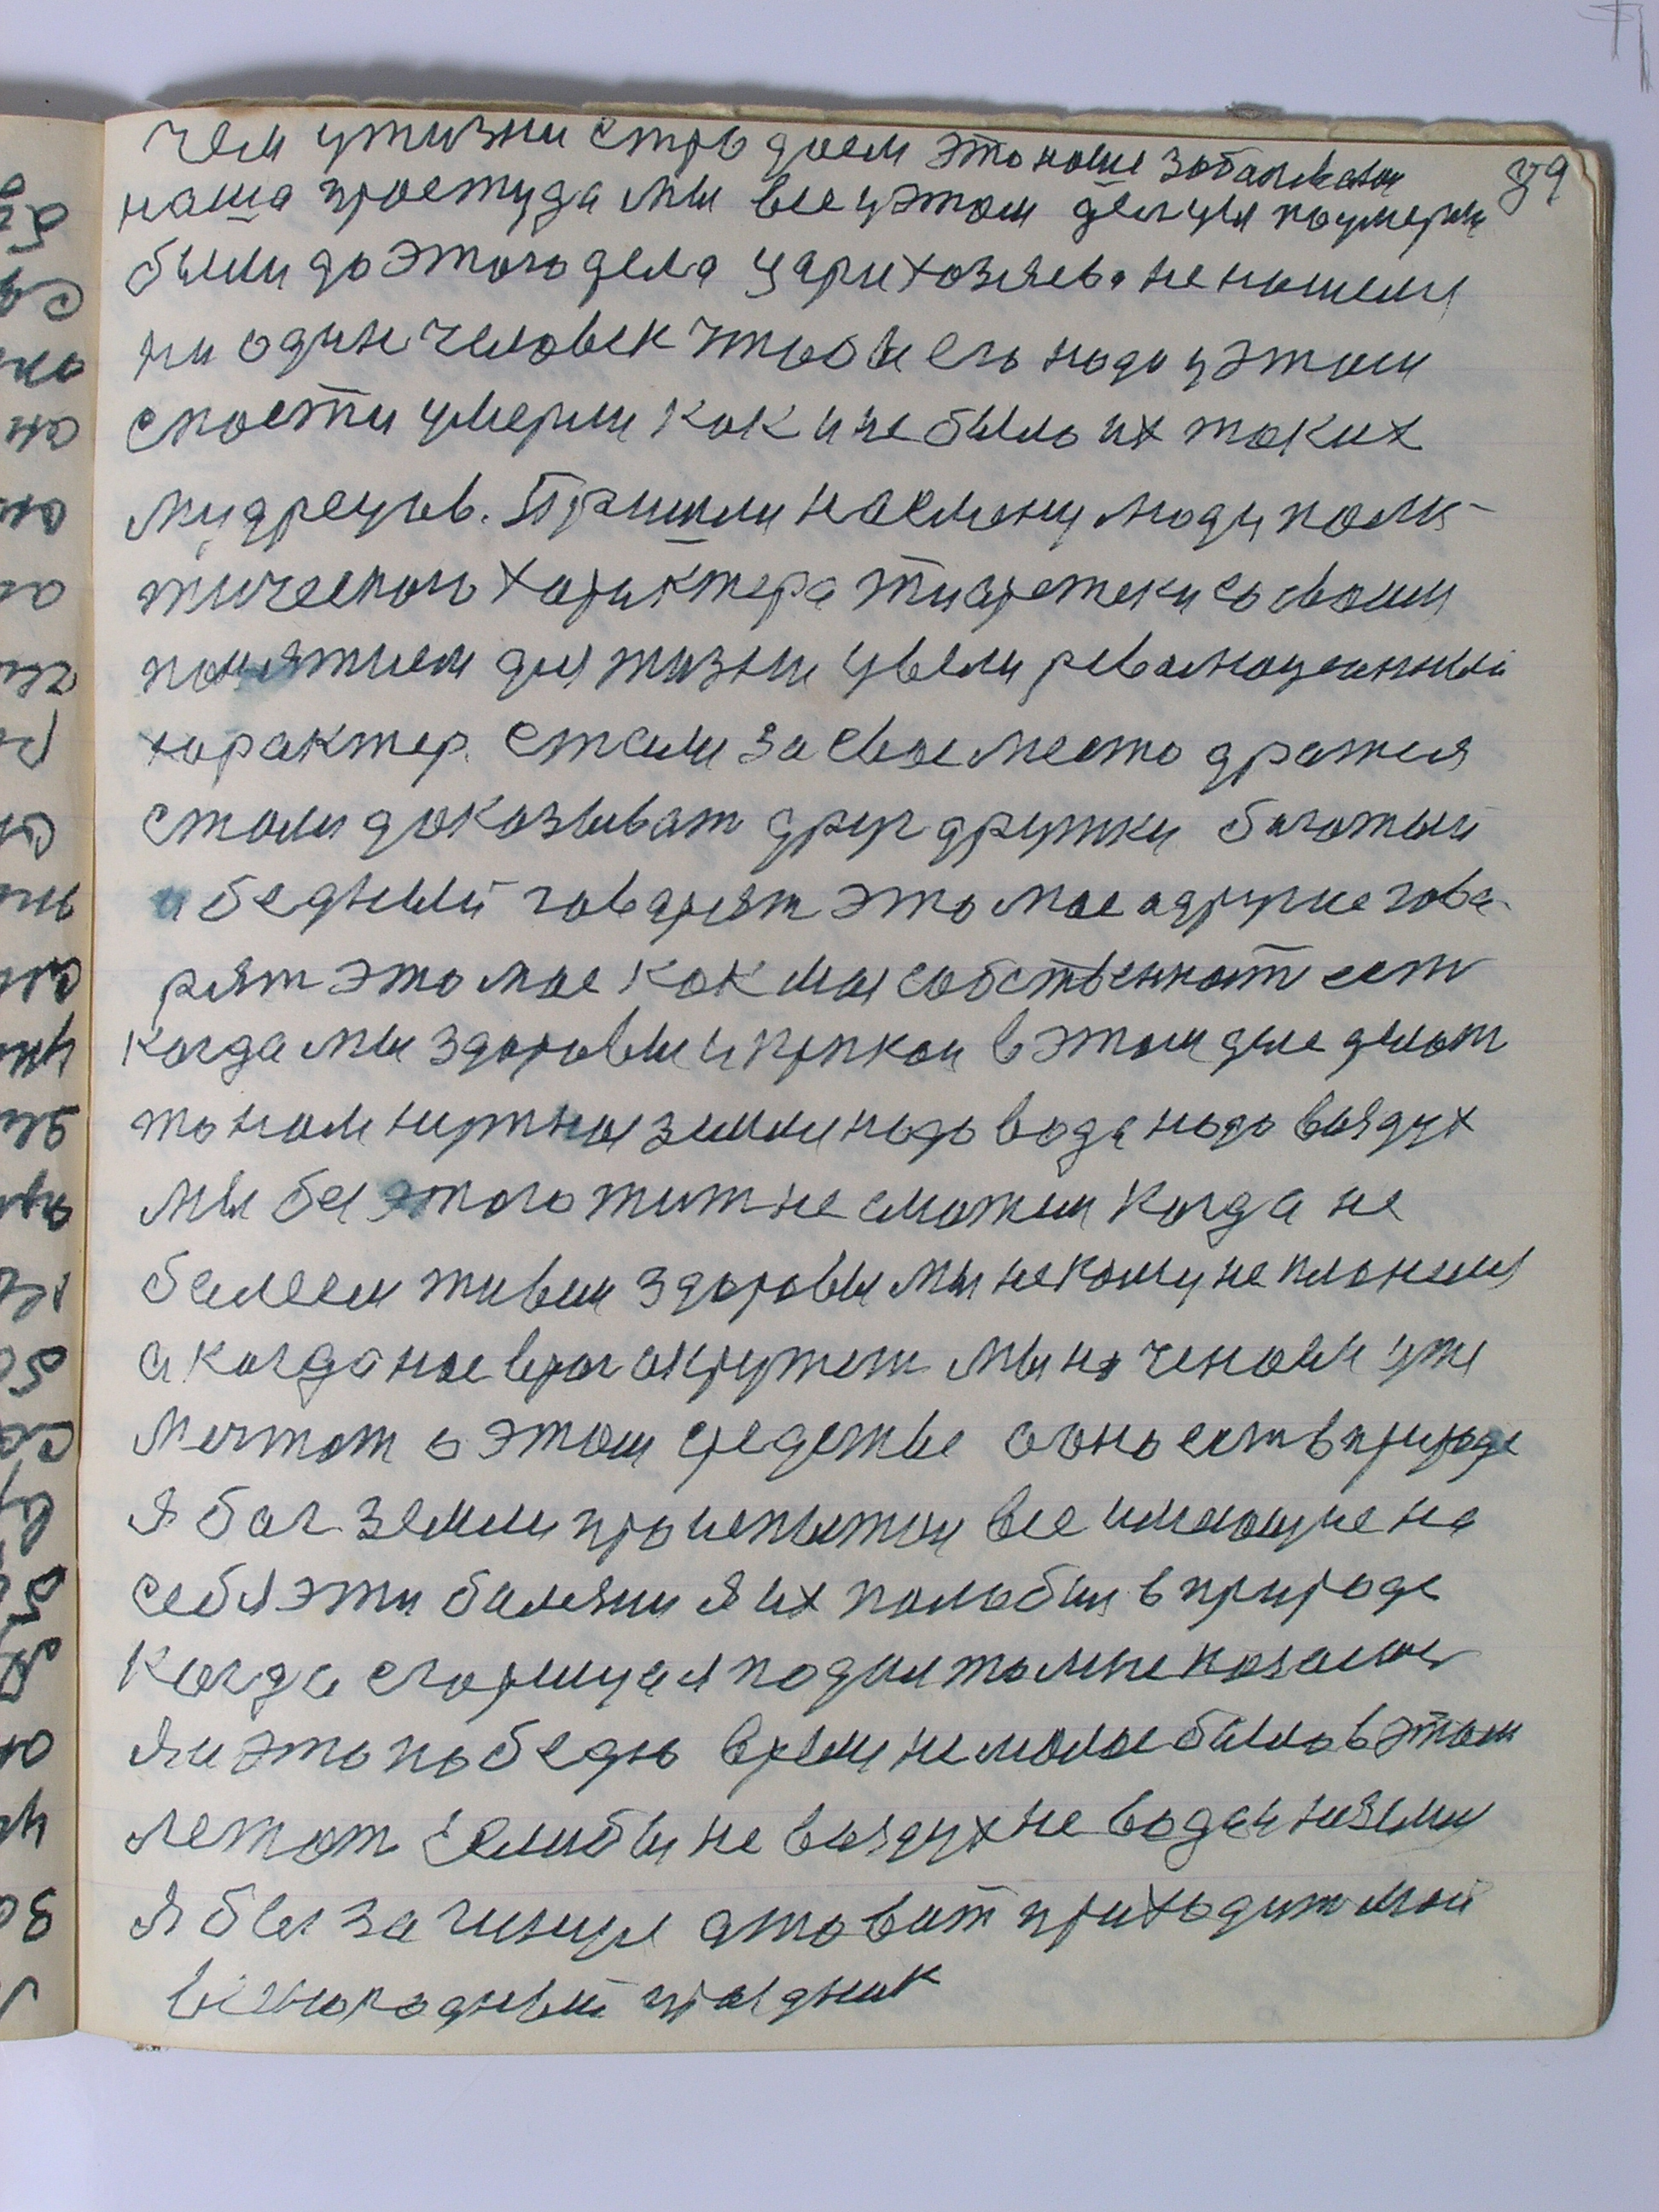 чем у жизни страдаем это наше заболевание
наша простуда мы все у этом деле уже поумерли
были до этого дела цари хозяева не нашели
ни один человек чтобы его надо у этом
спасти умерли как и не было их таких
мудрецов. Пришли на смену люди поли-
тического характера теоретеки со своим
понятием для жизни увели революцеонный
характер. Стали за свое место дратся
стали доказыват друг дружки багатый
и бедный говарят это мое а другие гова-
рят это мое как моя собственност ест
когда мы здоровы и крпкои в этом деле делат
то нам нужна земли надо вода надо воздух
мы без этого жит не сможем когда не
балеем живем здоровы мы некому не кланемся
а когда нас враг окружает мы наченаем уже
мечтат о этом средстве а оно ест в природе
Я бог земли про испытан все имеющие на
себя эти балезни я их полюбил в природе
Когда с горица я подим то мне казалос
Я и это победю время не малое было в этом
летат Если бы не воздух не вода и не земля
Я бы загинул а то вит приходит мой
всенородный праздник